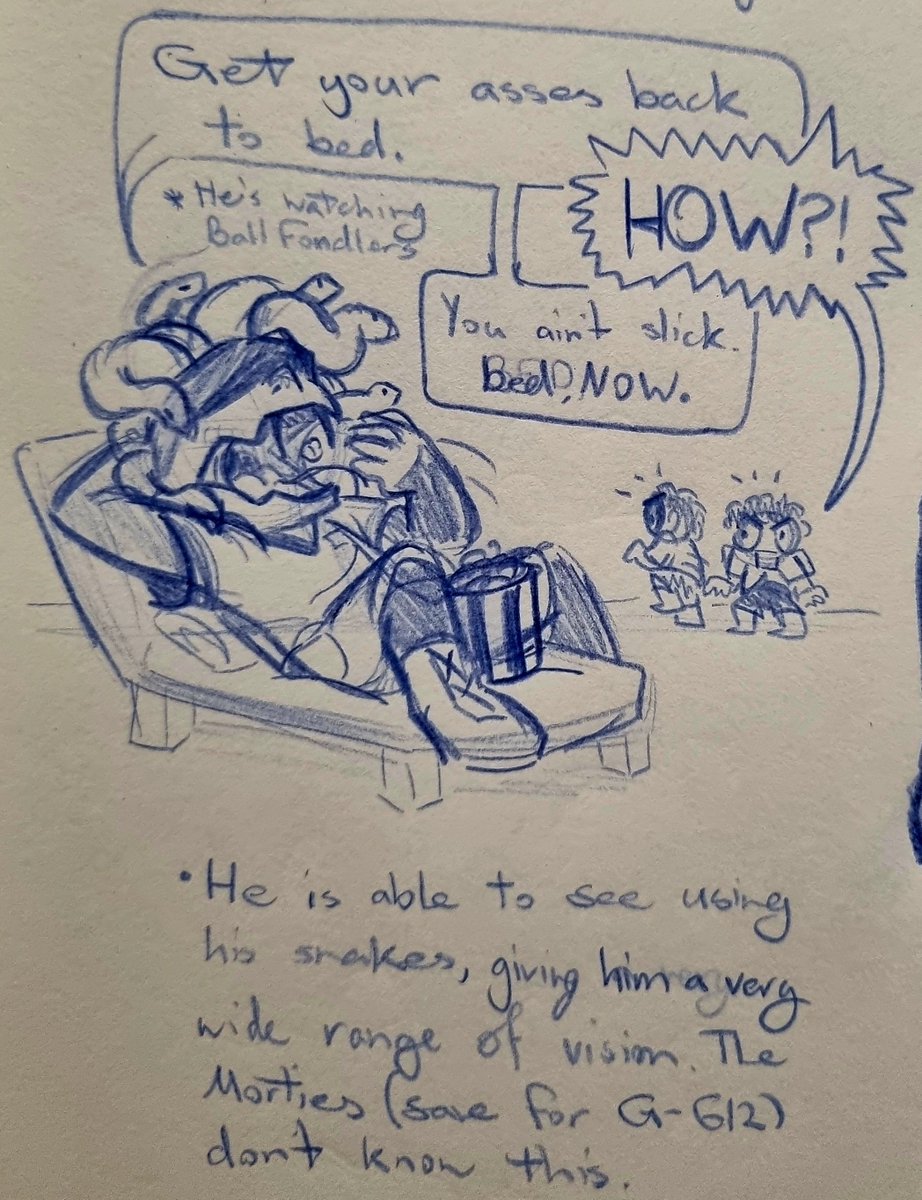 Get your asses back
to bed.
* He's watching
Ball Fondlers
HOW?!
You ain't slick.
Bed, NOW.
• He is able to see using
his snakes, giving him a very
wide range of vision. The
Morties (save for G-612)
don't know this.